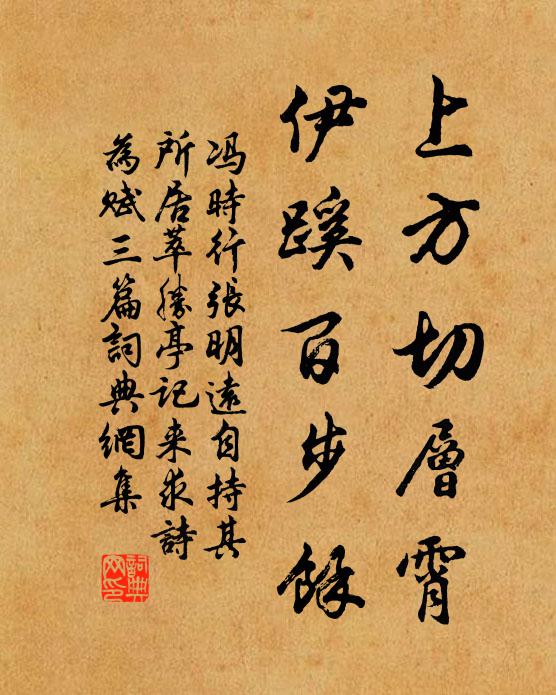 上方切層霄
伊蹊百步餘
馮時行張明遠自持其
所居萃勝亭記来求詩
為賦三篇詞典網集
詞典网印